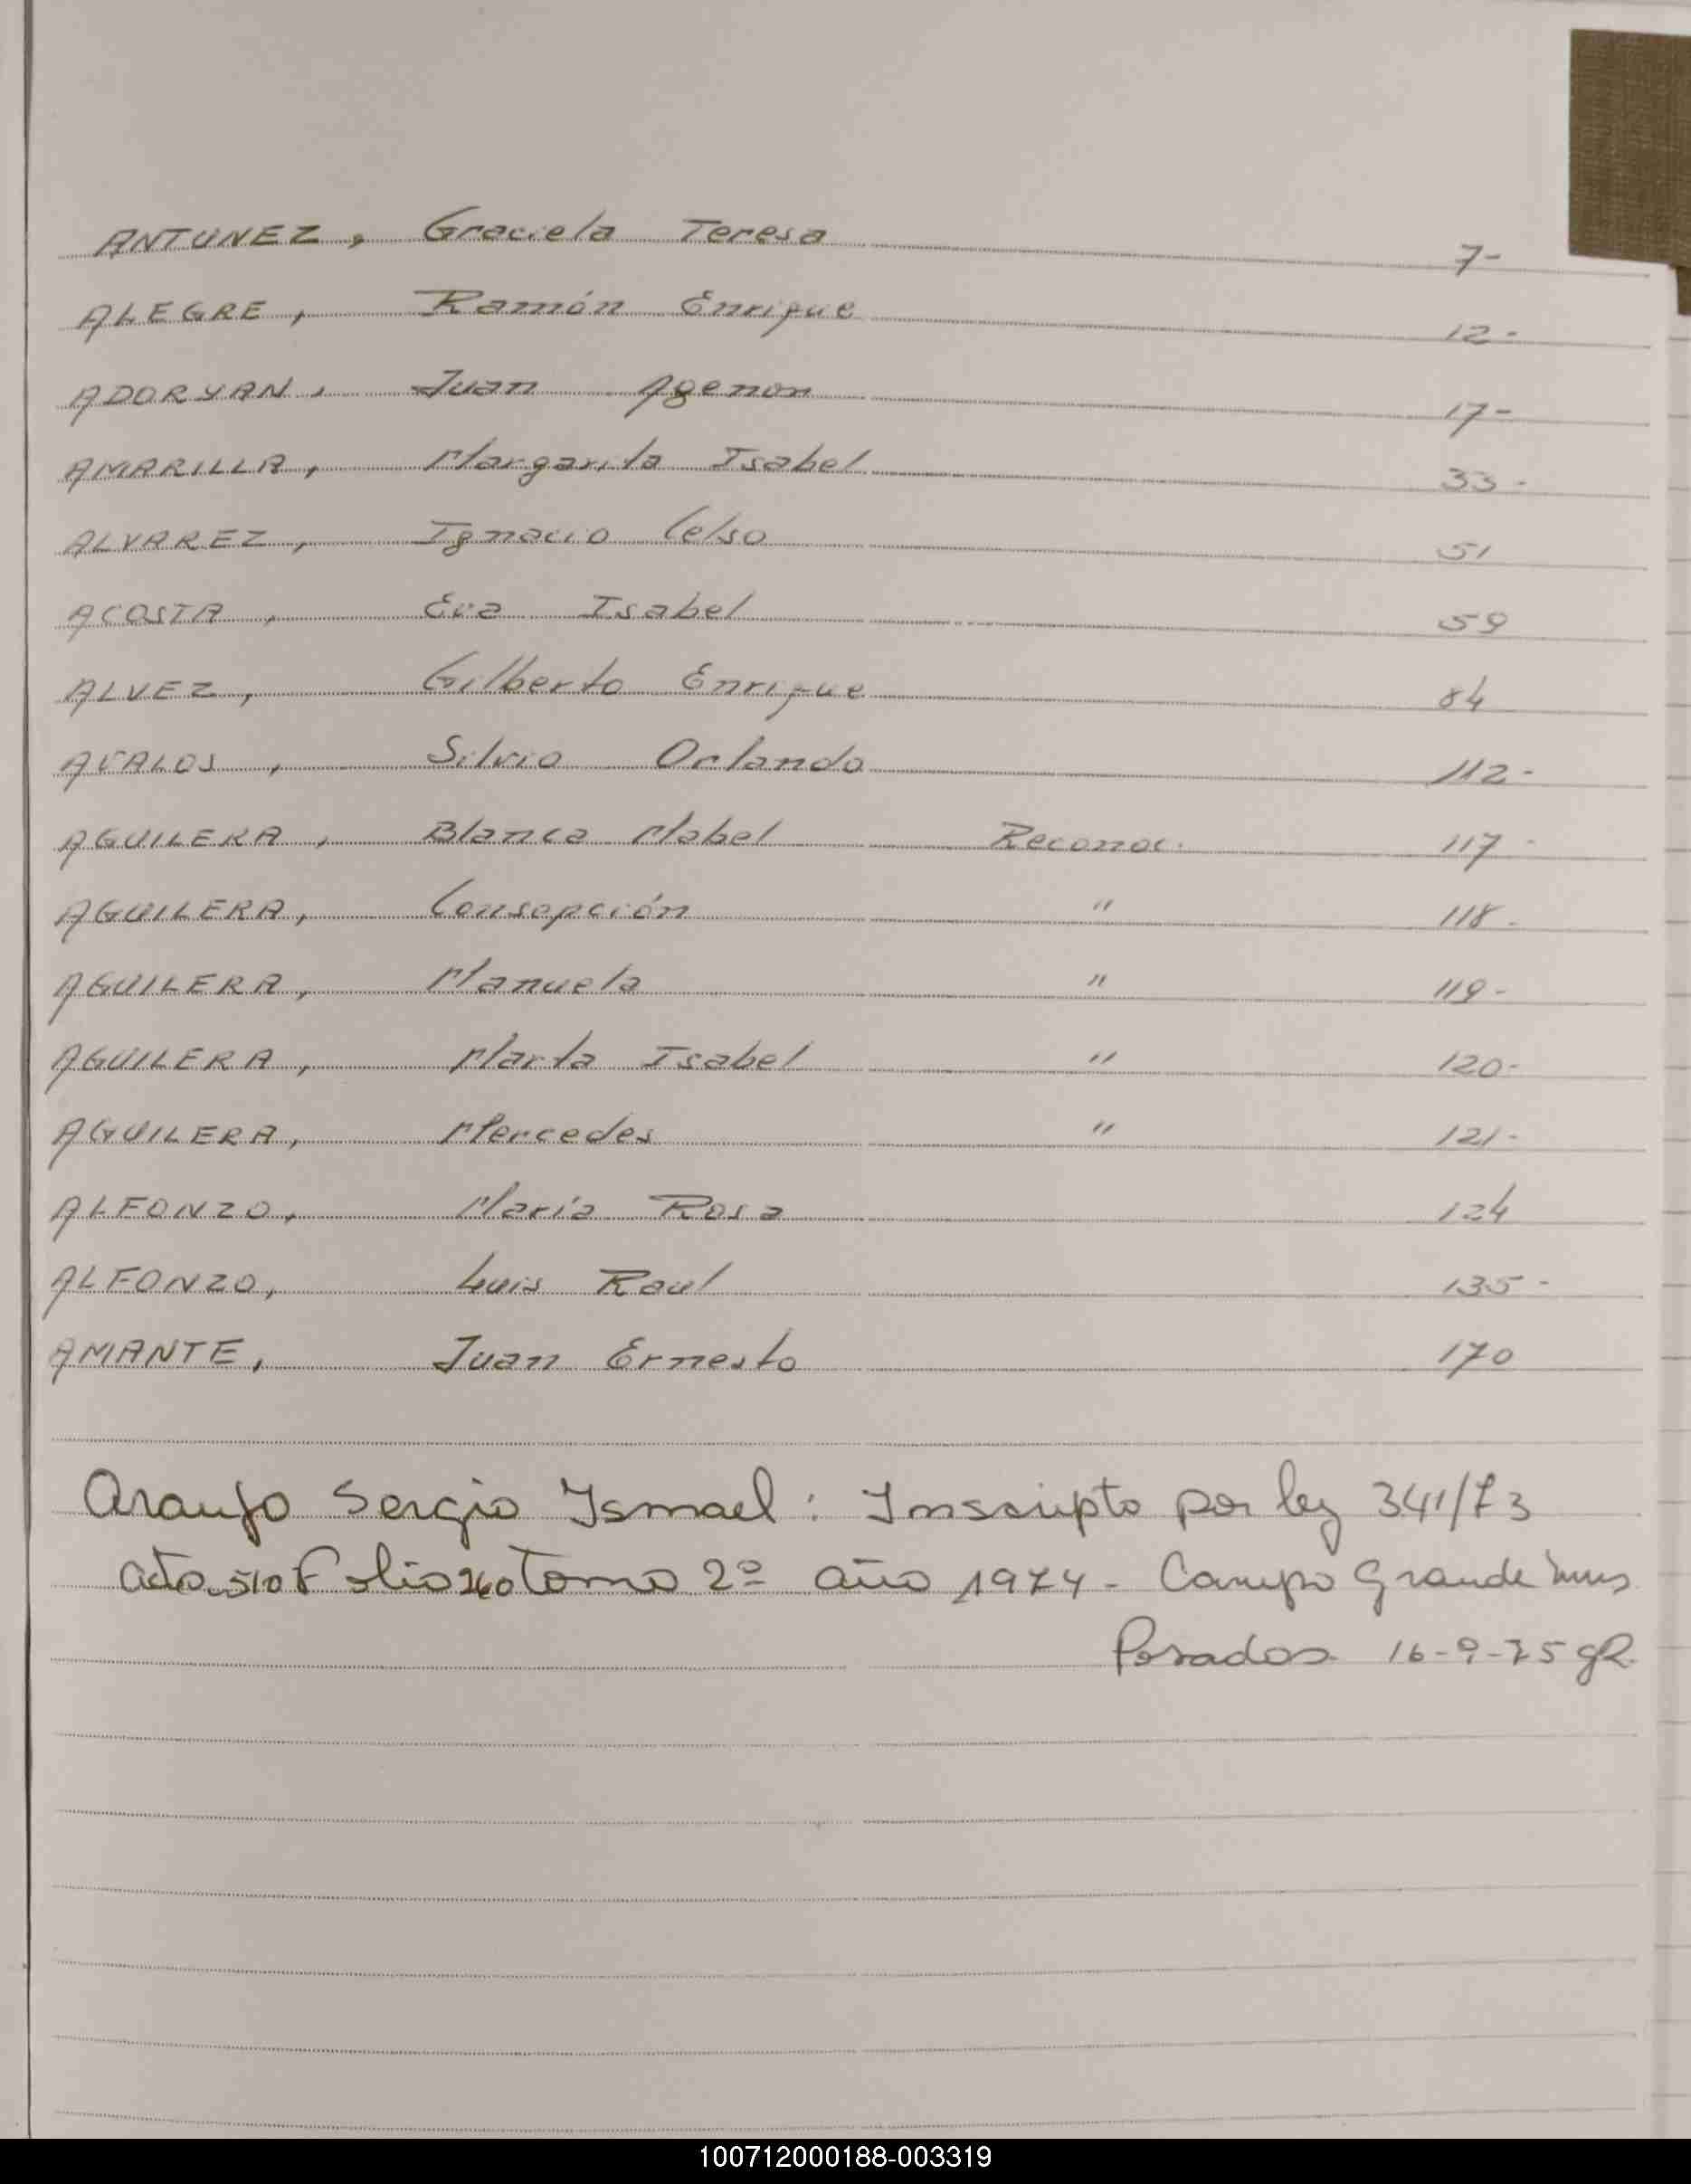 ANTUNEZ, Graciela Teresa 7-
ALEGRE, Ramón Enrique 12-
ADORYAN, Juan Agenon 17-
AMARILLA, Margarita Isabel 33-
ALVAREZ, Ignacio Celso 51
ACOSTA, Eva Isabel 59
ALVEZ, Gilberto Enrique 84
AVALOS, Silvio Orlando 112-
AGUILERA, Blanca Mabel Reconoc. 117-
AGUILERA, Consepción " 118-
AGUILERA, Manuela " 119-
AGUILERA, Marta Isabel " 120-
AGUILERA, Mercedes " 121-
ALFONZO, María Rosa 124
ALFONZO, Luis Raul 135-
AMANTE, Juan Ernesto 170
Araujo Sergio Ismael: Inscripto por ley 341/73
acta 510 Folio 260 Tomo 2º año 1974- Campo Grande
Posadas 16-9-75
100712000188-003319